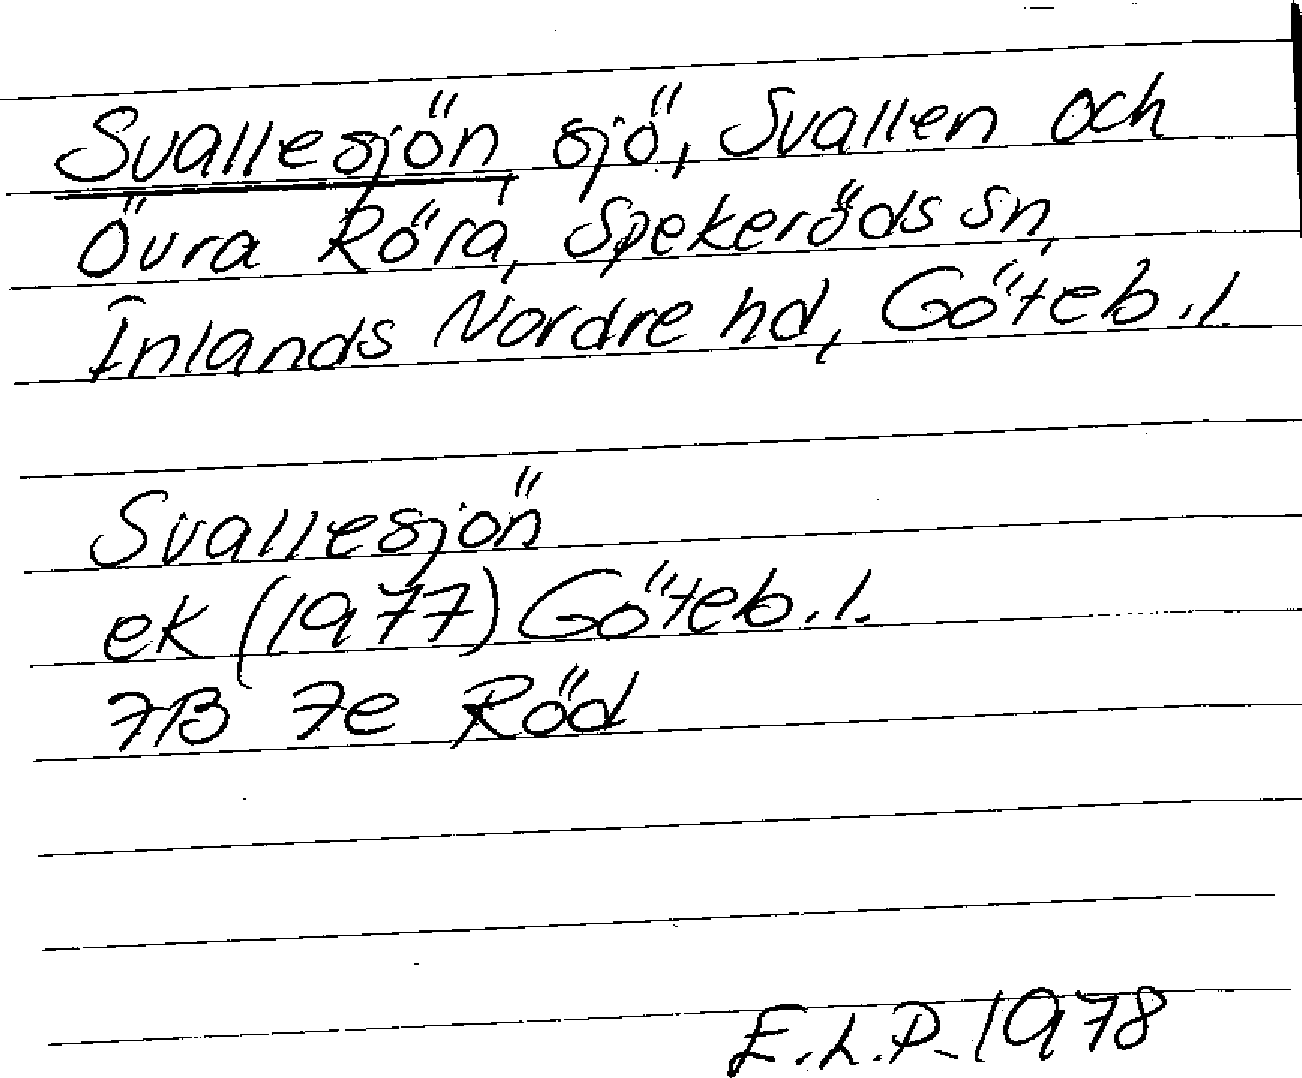 Svallesjön, sjö, Svallen och
Övra Röra, Spekeröds sn,
Inlands Nordre hd, Göteb.l.
Svallesjön
ek (1977) Göteb.l.
7B 7e Röd
E.L.P. 1978